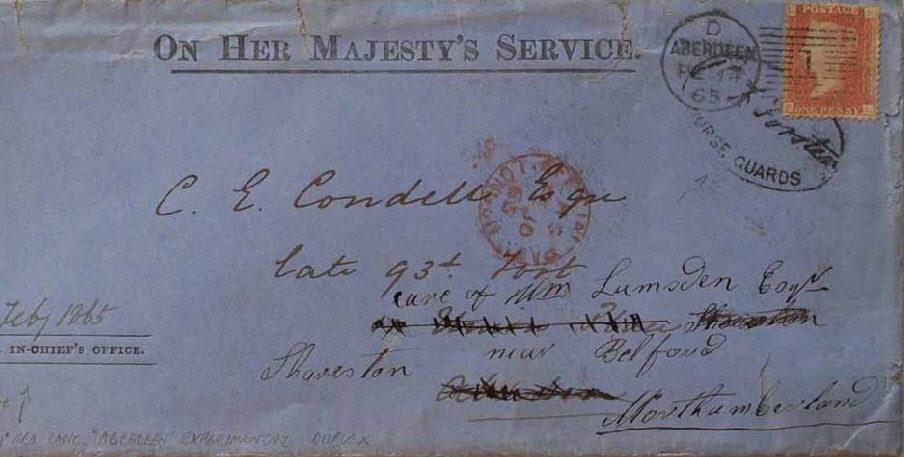 ON HER MAJESTY'S SERVICE.
D
ABERDEEN
65
POSTAGE
1
ONE PENNY
HORSE GUARDS
C. E. Condell Esqr
late 93d Foot
care of Wm Lumsden Esqr
near Belford
Shoreston
Northumberland
Feby 1865
IN-CHIEF'S OFFICE.
"ABERDEEN EXPERIMENTAL DUPLEX